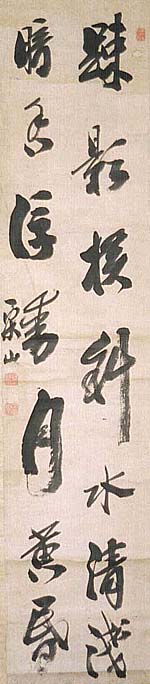 疎影横斜水清浅
暗香浮動月黄昏
栗山